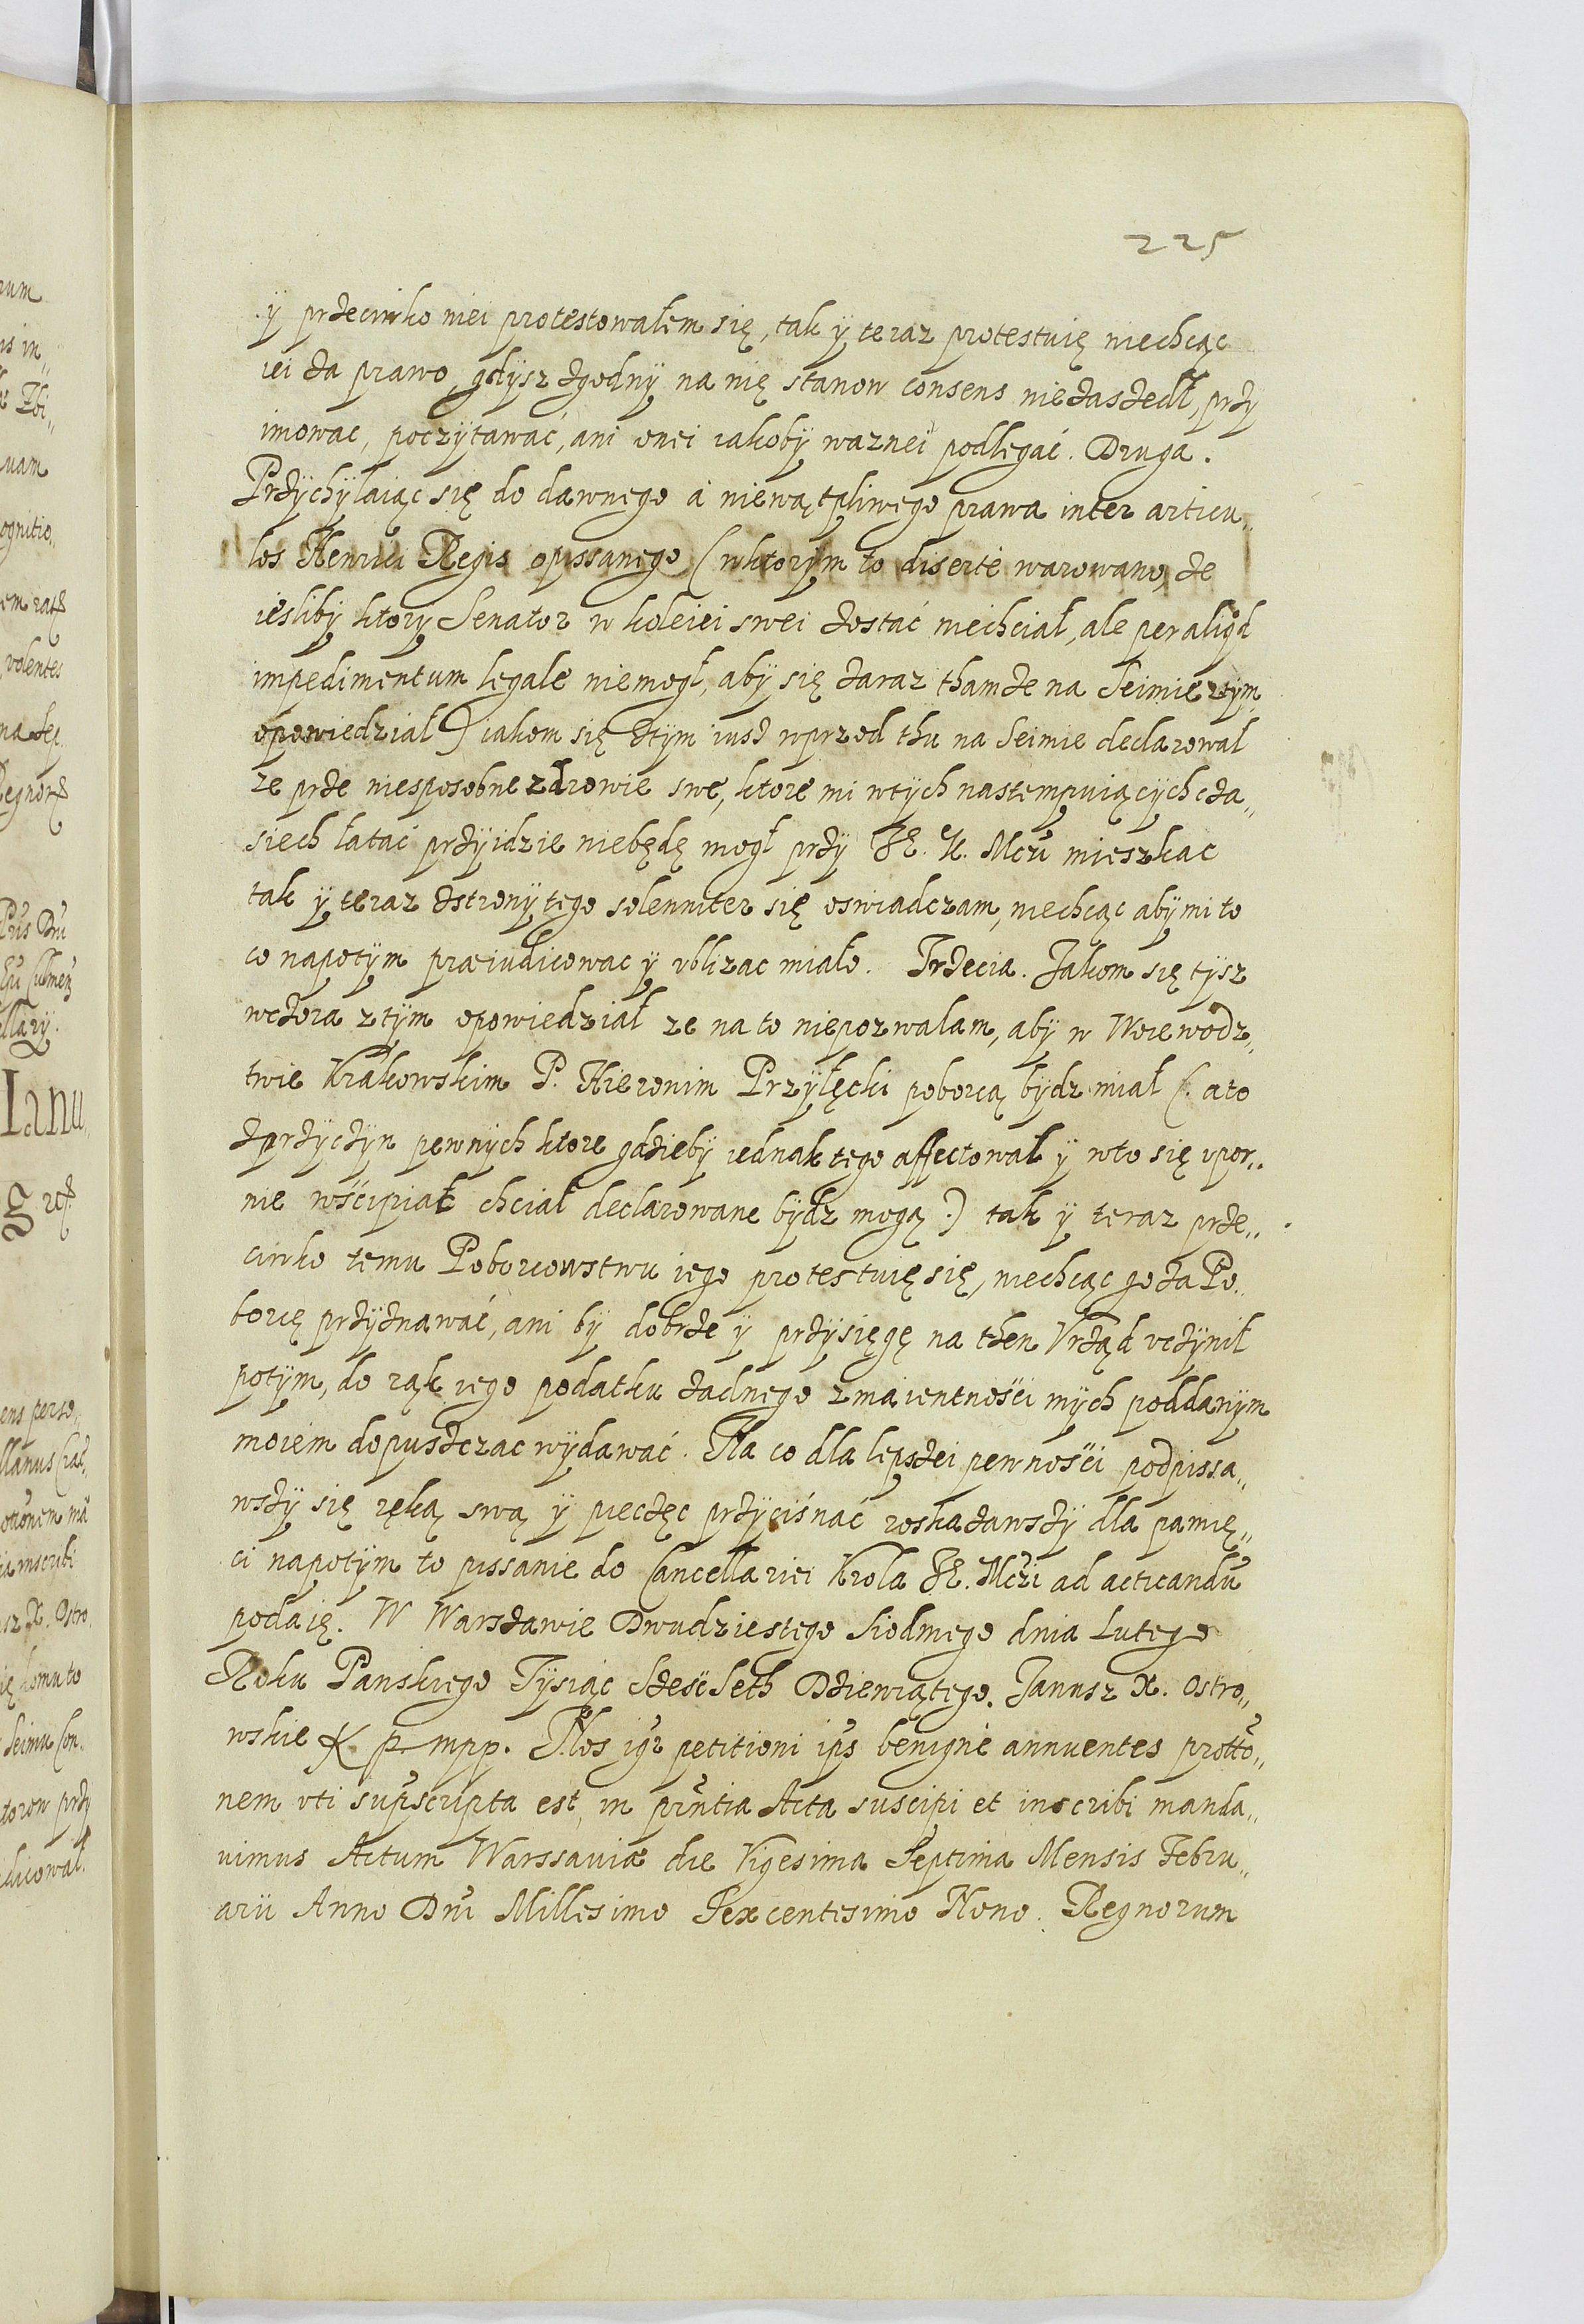 225
ÿ przeciwko niei protestowałem się, tak ÿ teraz protestuię niechcąc
iei za prawo, gdÿsz zgodnÿ na nię stanow consens niezaszedł, przÿ
imowac, poczÿtawać, ani onei iakobÿ waznei podlegać. Druga.
Przÿchÿlaiąc się do dawnego a niewątpliwego prawa inter articu„
los Henrici Regis opissanego (wktorÿm to disertè warowano, ze
iesliby ktory Senator w koleiei swei zostać niechciał, ale per aliqd
impedimentum legale niemogł, abÿ się zaraz thamze na Seimie ztÿm
opowiedział) iakom się ztÿm iusz wprzod thu na Seimie declarował
ze prze niesposobne zdrowie swe, ktore mi wtÿch nastempuiącÿch cza„
siech łatać przÿidzie niebędę mogł przÿ JE. K. Mczi mieszkac
tak ÿ teraz zstronÿ tego solenniter się oswiadczam, niechcąc abÿ mi to
co napotÿm præiudicowac ÿ vblizac miało. Trzecia. Jakom się tÿsz
wczora ztÿm opowiedział ze na to niepozwalam, abÿ w Woiewodz„
twie Krakowskim P. Hieronim Przÿłęcki poborcą bÿdz miał (. a to
zprzÿczÿn pewnÿch ktore gdziebÿ iednak tego affectował ÿ wto się vpor„
nie wścipiał chciał declarowane bÿdz mogą .) tak ÿ teraz prze„
ciwko temu Poborcowstwu iego protestuię się, niechcąc go za Po„
borcę przÿznawać, ani bÿ dobrze ÿ przÿsięgę na then Vrząd vczÿnił
potÿm, do rąk iego podatku zadnego zmaientności mÿch poddanÿm
moiem dopuszczac wÿdawać. Na co dla lepszei pewności podpissa„
wszÿ się ręką swą ÿ pieczęc przÿcisnać roskazawszÿ dla pamię„
ci napotÿm to pissanie do Cancellariei Krola JE. Mczi ad acticandũ
podaię. W Warszawie Dwudziestego Siodmego dnia Lutego
Roku Panskiego Tÿsiąc Szesc Seth Dziewiątego. Janusz X. Ostro„
wskie K p mpp. Nos igr petitioni ips benignè annuentes protto„
nem vti suprscripta est, in prñtia Acta suscipi et inscribi manda„
uimus Actum Warssauiæ die Vigesima Septima Mensis Febru„
arii Anno Dni Millesimo Sexcentesimo Nono. Regnorum